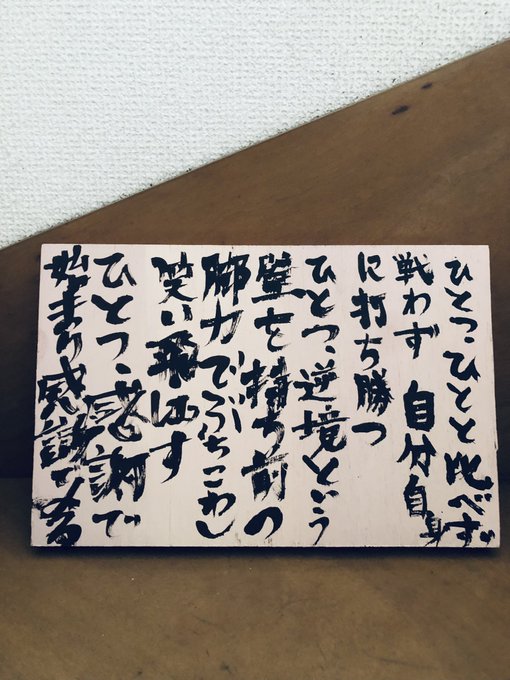 ひとつ、ひとと比べず
戦わず 自分自身
に打ち勝つ
ひとつ、逆境という
壁を持ち前の
脚力でぶちこわし
笑い飛ばす
ひとつ、感謝で
始まり感謝で終る